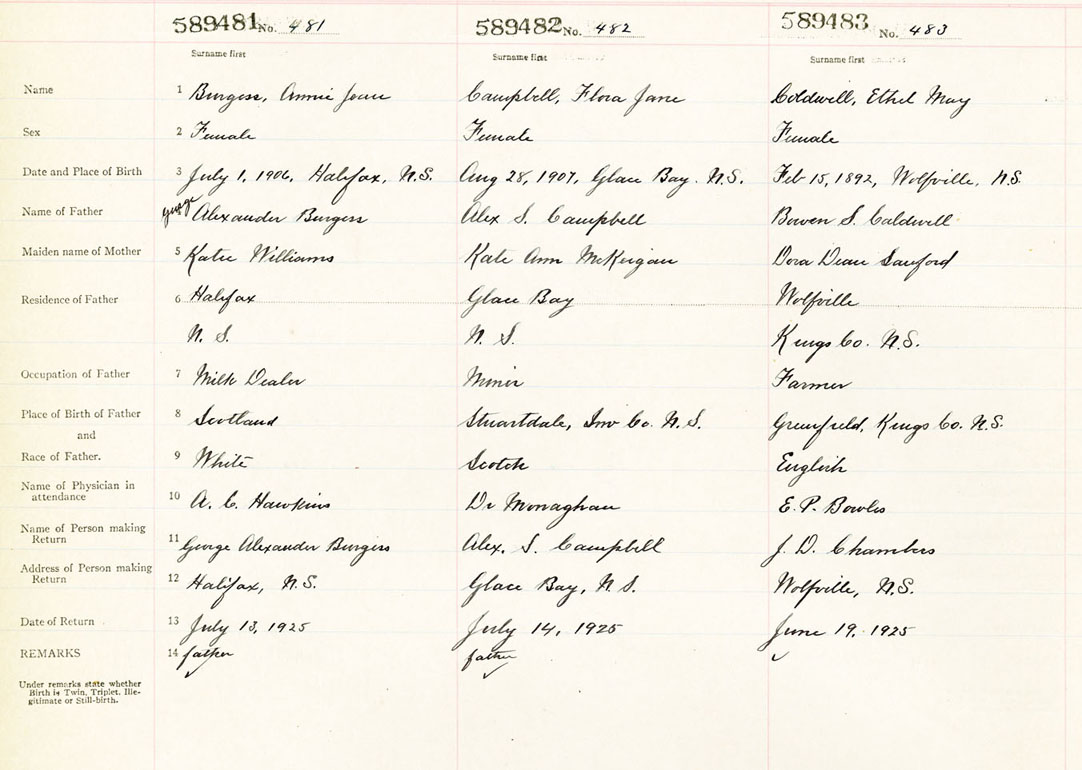 589481 No. 481 589482 No. 482 589483 No. 483
Surname first Surname first Surname first
Name 1 Burgess, Annie Jean Campbell, Flora Jane Coldwell, Ethel May
Sex 2 Female Female Female
Date and Place of Birth 3 July 1, 1906, Halifax, N.S. Aug 28, 1907, Glace Bay. N.S. Feb 15, 1892, Wolfville, N.S.
Name of Father George Alexander Burgess Alex S. Campbell Bowen S. Caldwell
Maiden name of Mother 5 Katie Williams Kate Ann McKeigan Dora Dean Sanford
Residence of Father 6 Halifax Glace Bay Wolfville
N. S. N. S. Kings Co. N.S.
Occupation of Father 7 Milk Dealer Miner Farmer
Place of Birth of Father 8 Scotland Stuartdale, Inv Co. N.S. Greenfield, Kings Co. N.S.
and
Race of Father. 9 White Scotch English
Name of Physician in
attendance 10 A. C. Hawkins Dr Monaghan E. P. Bowles
Name of Person making
Return 11 George Alexander Burgess Alex. S. Campbell J. D. Chambers
Address of Person making
Return 12 Halifax, N.S. Glace Bay, N.S. Wolfville, N.S.
Date of Return 13 July 13, 1925 July 14, 1925 June 19, 1925
REMARKS 14 father father
Under remarks state whether
Birth is Twin, Triplet, Ille-
gitimate or Still-birth.